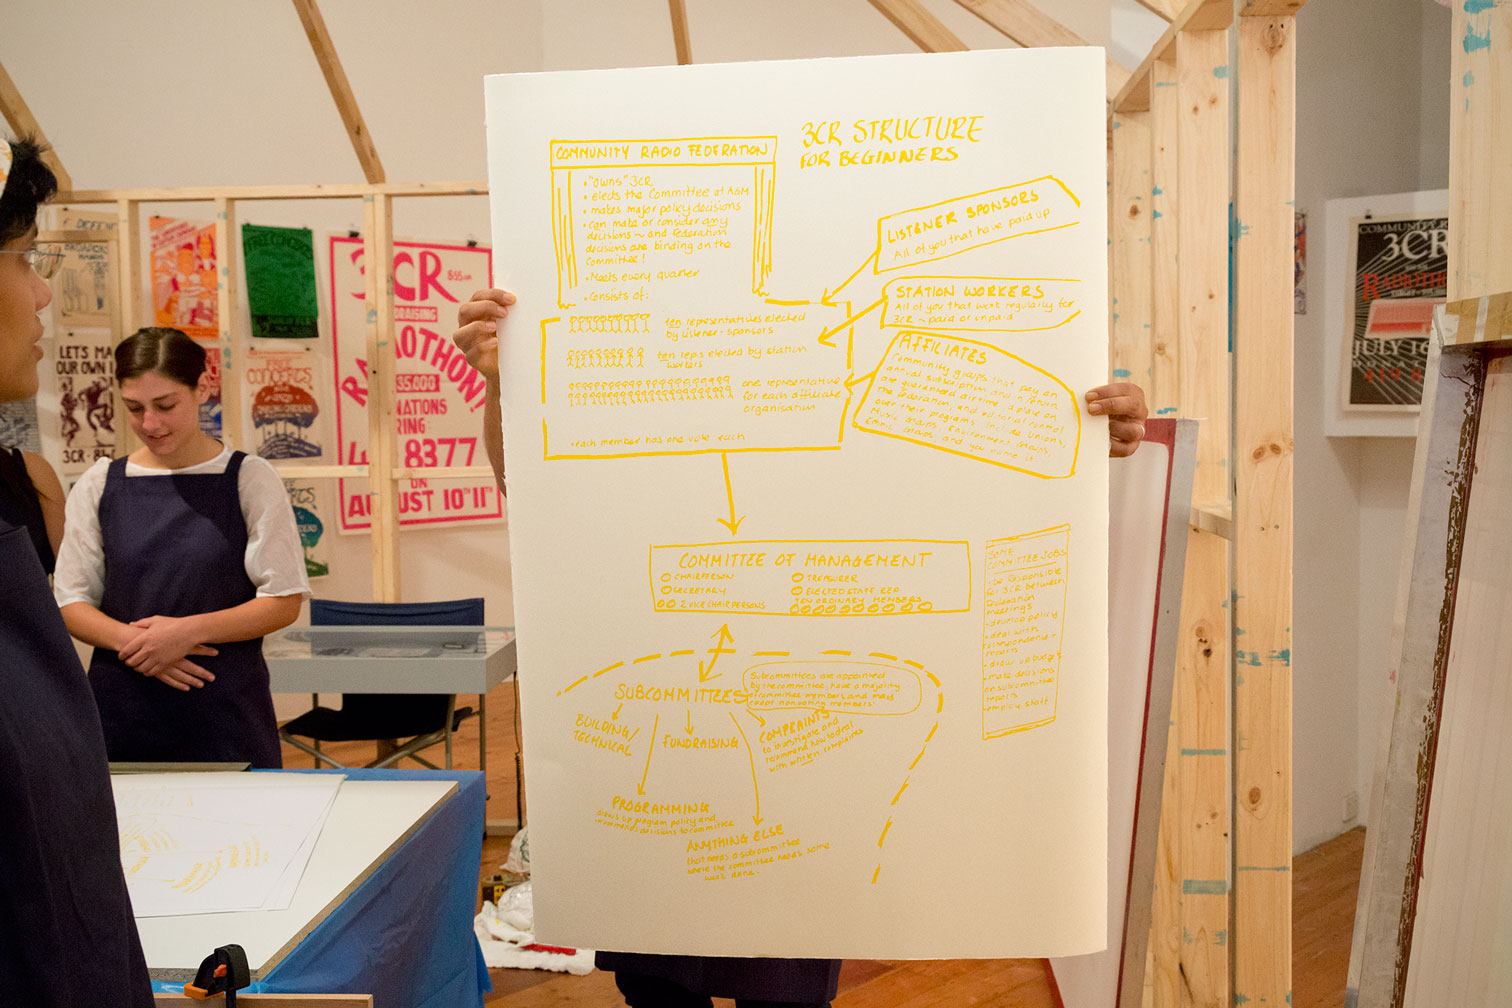 3CR STRUCTURE
FOR BEGINNERS
COMMUNITY RADIO FEDERATION
• "owns" 3CR
• elects the Committee at AGM
• makes major policy decisions
• can make or consider any
decisions – and Federation
decisions are binding on the
Committee!
• Meets every quarter
• Consists of:
ten representatives elected
by listener-sponsors
ten reps elected by station
workers
one representative
for each affiliate
organisation
• each member has one vote each
LISTENER SPONSORS
All of you that have paid up
STATION WORKERS
All of you that work regularly for
3CR – paid or unpaid
AFFILIATES
Community groups that pay an
annual subscription and in return
are guaranteed airtime, a place on
the federation, and editorial control
over their programs. Includes unions,
Music groups, Environment groups,
Ethnic groups and you name it
COMMITTEE OF MANAGEMENT
CHAIRPERSON
SECRETARY
2 VICE CHAIRPERSONS
TREASURER
ELECTED STAFF REP
TEN ORDINARY MEMBERS
SOME
COMMITTEE JOBS
• be Responsible
for 3CR between
federation
meetings
• develop policy
• deal with
correspondence –
reports
• draw up budgets
• make decisions
on subcommittee
reports
employ staff
SUBCOMMITTEES
Subcommittees are appointed
by the committee, have a majority
of committee members and may
coopt non voting members
BUILDING/
TECHNICAL
FUNDRAISING
COMPLAINTS
to investigate and
recommend how to deal
with written complaints
PROGRAMMING
draws up program policy and
recommends decisions to committee
ANYTHING ELSE
that needs a subcommittee
where the committee needs some
work done.
3CR
855 am
RAISING
THON!
35,000
NATIONS
RING:
8377
ON
AUGUST 10TH 11TH
LET'S MA
OUR OWN
3CR
FREE CONCERTS
COMMUNITY R
3CR
RADIOTHO
JULY 16